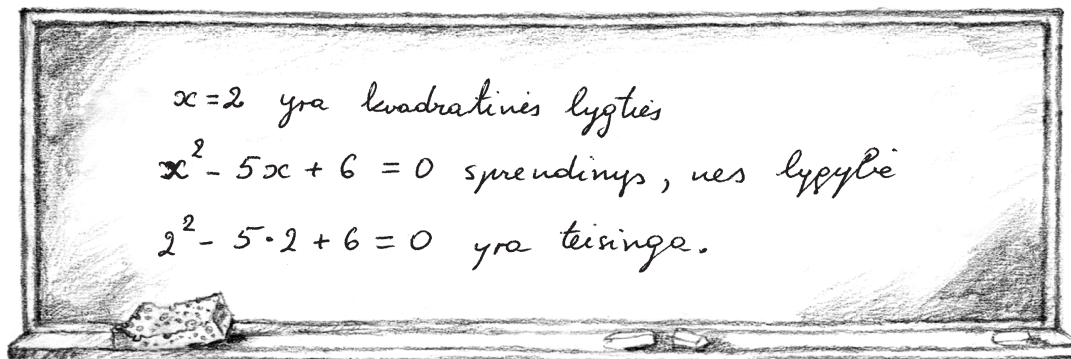 x = 2 yra kvadratinės lygties
x² - 5x + 6 = 0 sprendinys, nes lygybė
2² - 5·2 + 6 = 0 yra teisinga.